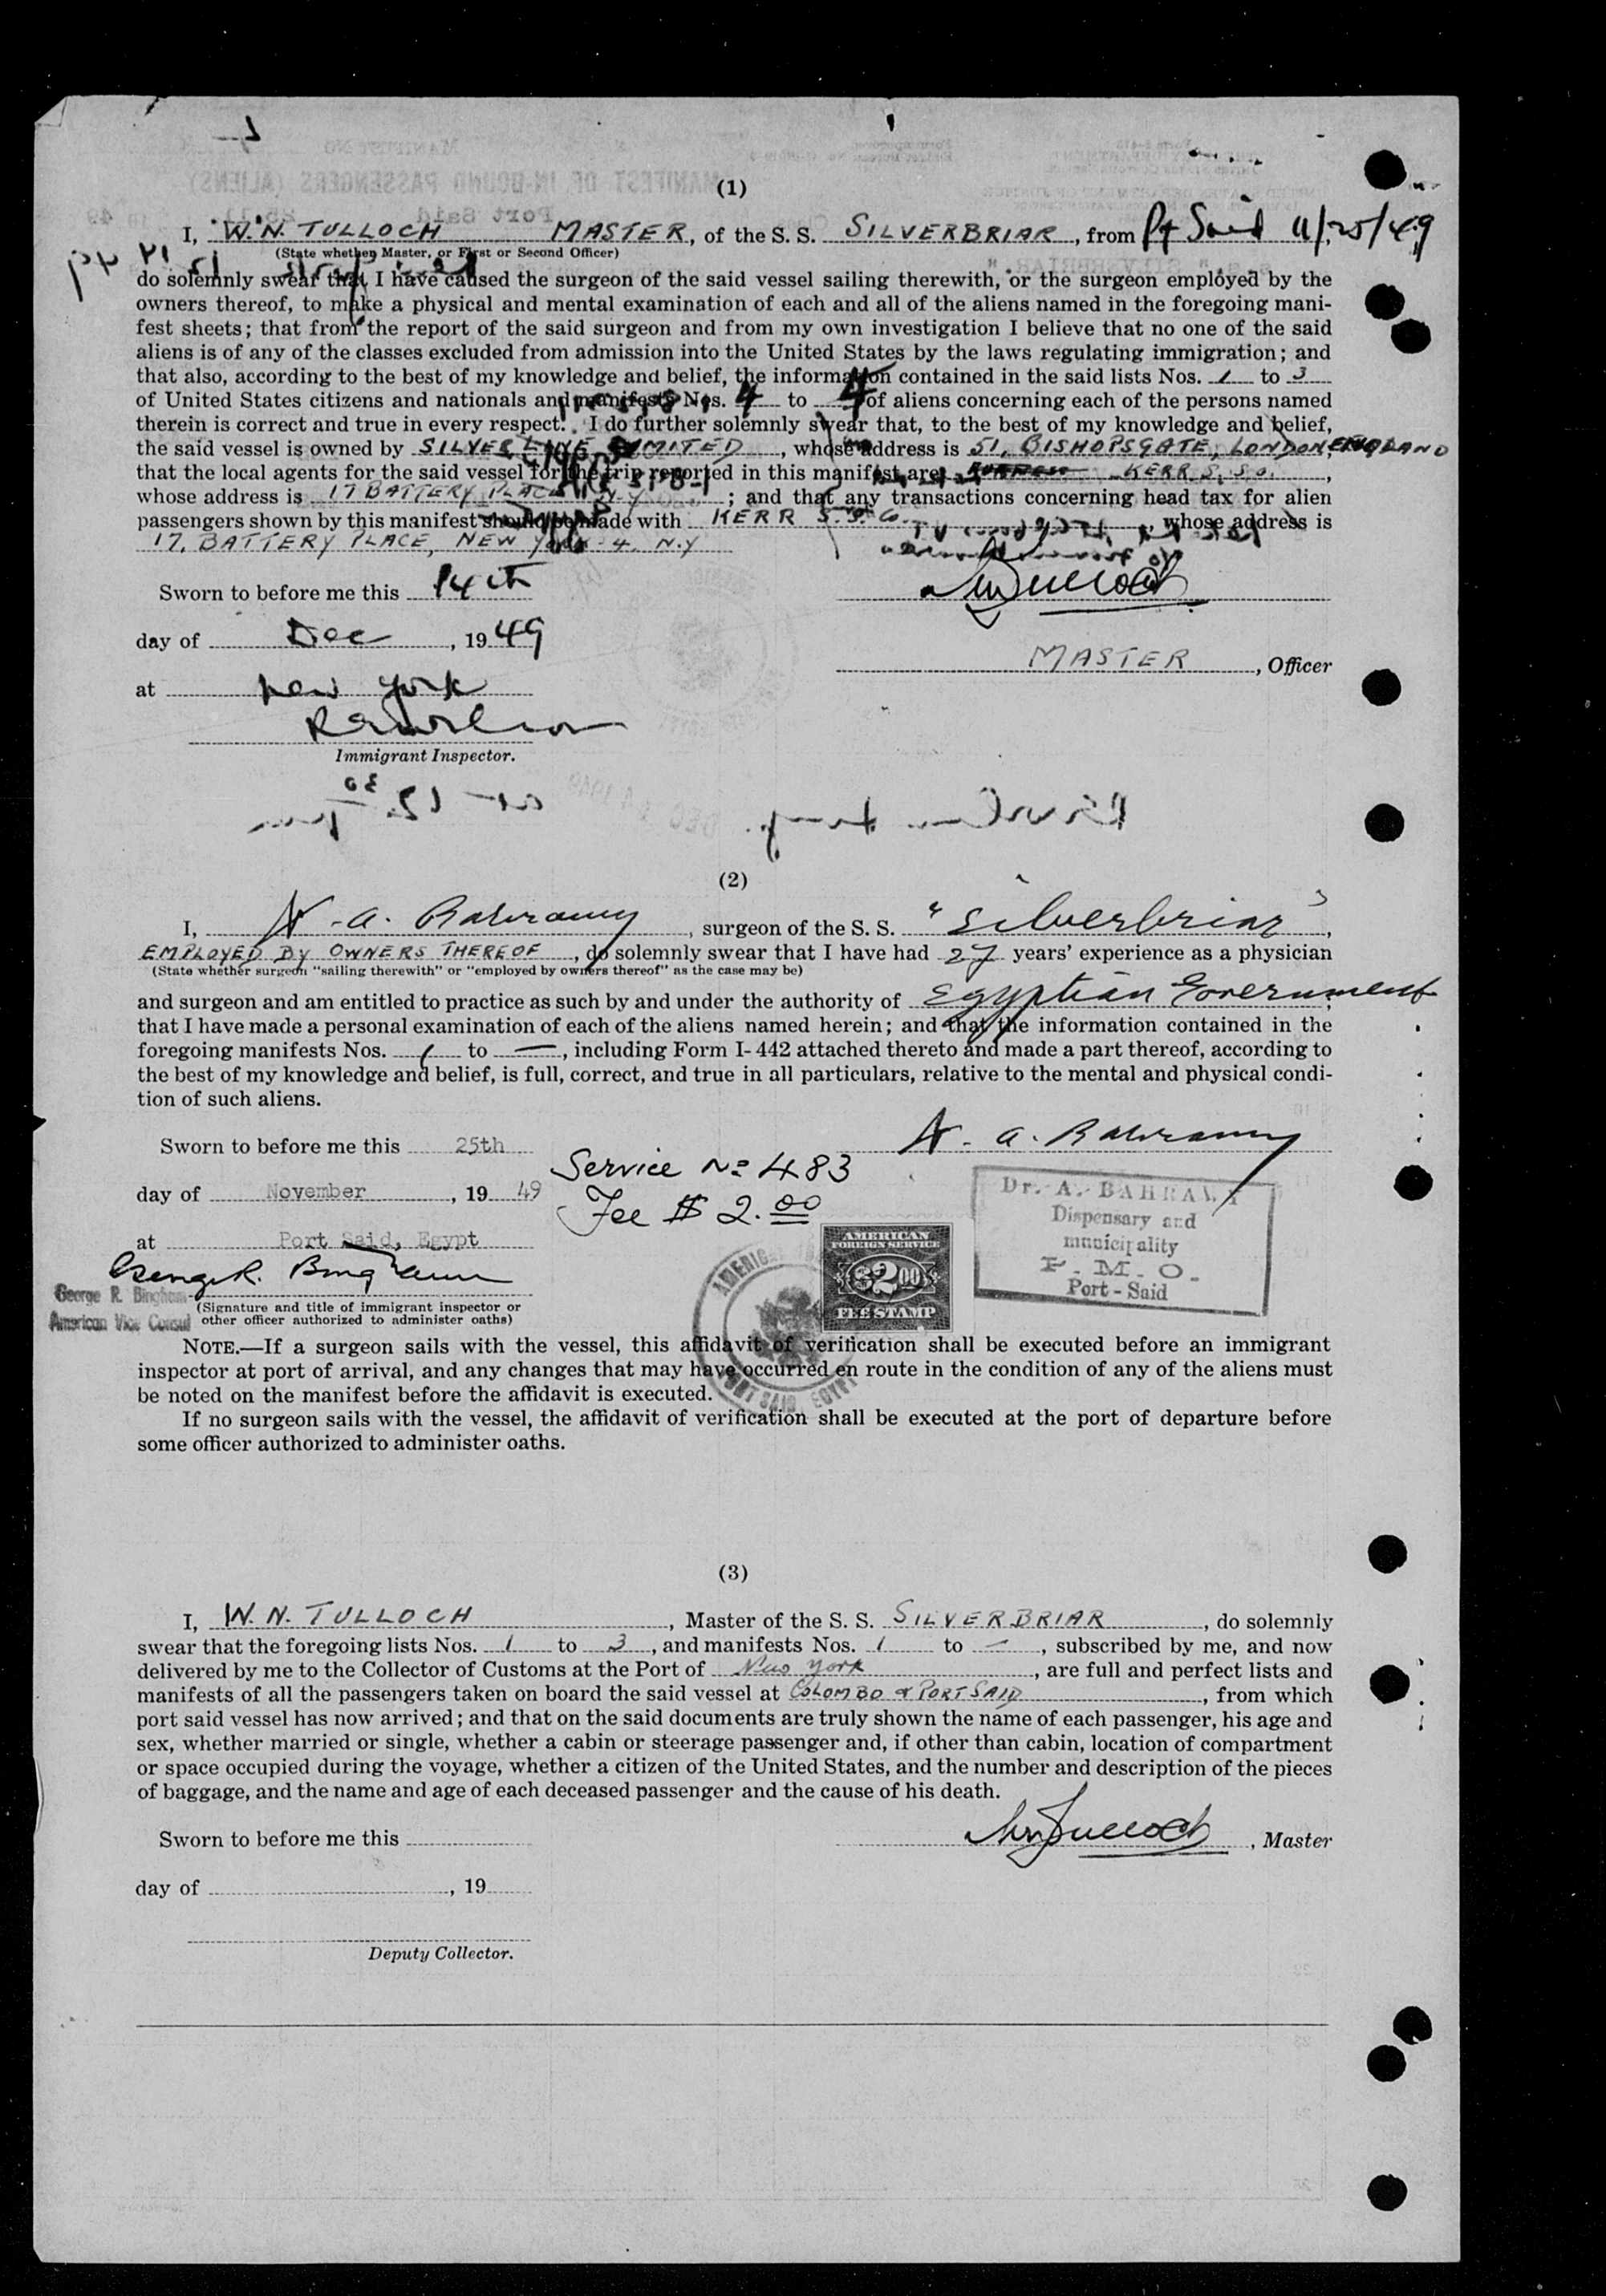 (1)
I, W. N. TULLOCH MASTER, of the S. S. SILVERBRIAR, from Pt Said 11/25/49
(State whether Master, or First or Second Officer)
do solemnly swear that I have caused the surgeon of the said vessel sailing therewith, or the surgeon employed by the
owners thereof, to make a physical and mental examination of each and all of the aliens named in the foregoing mani-
fest sheets; that from the report of the said surgeon and from my own investigation I believe that no one of the said
aliens is of any of the classes excluded from admission into the United States by the laws regulating immigration; and
that also, according to the best of my knowledge and belief, the information contained in the said lists Nos. 1 to 3
of United States citizens and nationals and manifests Nos. 4 to 4 of aliens concerning each of the persons named
therein is correct and true in every respect. I do further solemnly swear that, to the best of my knowledge and belief,
the said vessel is owned by SILVER LINE LIMITED, whose address is 51, BISHOPSGATE, LONDON, ENGLAND
that the local agents for the said vessel for the trip reported in this manifest are KERR S. S. Co.,
whose address is 17 BATTERY PLACE N.Y.; and that any transactions concerning head tax for alien
passengers shown by this manifest should be made with KERR S. S. Co., whose address is
17, BATTERY PLACE, NEW YORK 4. N.Y
Sworn to before me this 14th
day of Dec, 1949
MASTER, Officer
at New York
Immigrant Inspector.
(2)
I, A. Bahramy, surgeon of the S. S. "Silverbriar",
EMPLOYED BY OWNERS THEREOF, do solemnly swear that I have had 27 years' experience as a physician
(State whether surgeon "sailing therewith" or "employed by owners thereof" as the case may be)
and surgeon and am entitled to practice as such by and under the authority of Egyptian Government;
that I have made a personal examination of each of the aliens named herein; and that the information contained in the
foregoing manifests Nos. 1 to —, including Form I-442 attached thereto and made a part thereof, according to
the best of my knowledge and belief, is full, correct, and true in all particulars, relative to the mental and physical condi-
tion of such aliens.
Sworn to before me this 25th
Service No 483
day of November, 19 49
Fee $ 2.00
at Port Said, Egypt
George R. Bingham
George R. Bingham
American Vice Consul
(Signature and title of immigrant inspector or
other officer authorized to administer oaths)
AMERICAN
FOREIGN SERVICE
$2.00
FEE STAMP
PORT SAID, EGYPT
Dr. A. BAHRAMY
Dispensary and
municipality
P. M. O.
Port-Said
NOTE.—If a surgeon sails with the vessel, this affidavit of verification shall be executed before an immigrant
inspector at port of arrival, and any changes that may have occurred en route in the condition of any of the aliens must
be noted on the manifest before the affidavit is executed.
If no surgeon sails with the vessel, the affidavit of verification shall be executed at the port of departure before
some officer authorized to administer oaths.
(3)
I, W. N. TULLOCH, Master of the S. S. SILVERBRIAR, do solemnly
swear that the foregoing lists Nos. 1 to 3, and manifests Nos. 1 to —, subscribed by me, and now
delivered by me to the Collector of Customs at the Port of New York, are full and perfect lists and
manifests of all the passengers taken on board the said vessel at COLOMBO & PORT SAID, from which
port said vessel has now arrived; and that on the said documents are truly shown the name of each passenger, his age and
sex, whether married or single, whether a cabin or steerage passenger and, if other than cabin, location of compartment
or space occupied during the voyage, whether a citizen of the United States, and the number and description of the pieces
of baggage, and the name and age of each deceased passenger and the cause of his death.
Sworn to before me this
WN Tulloch, Master
day of , 19
Deputy Collector.